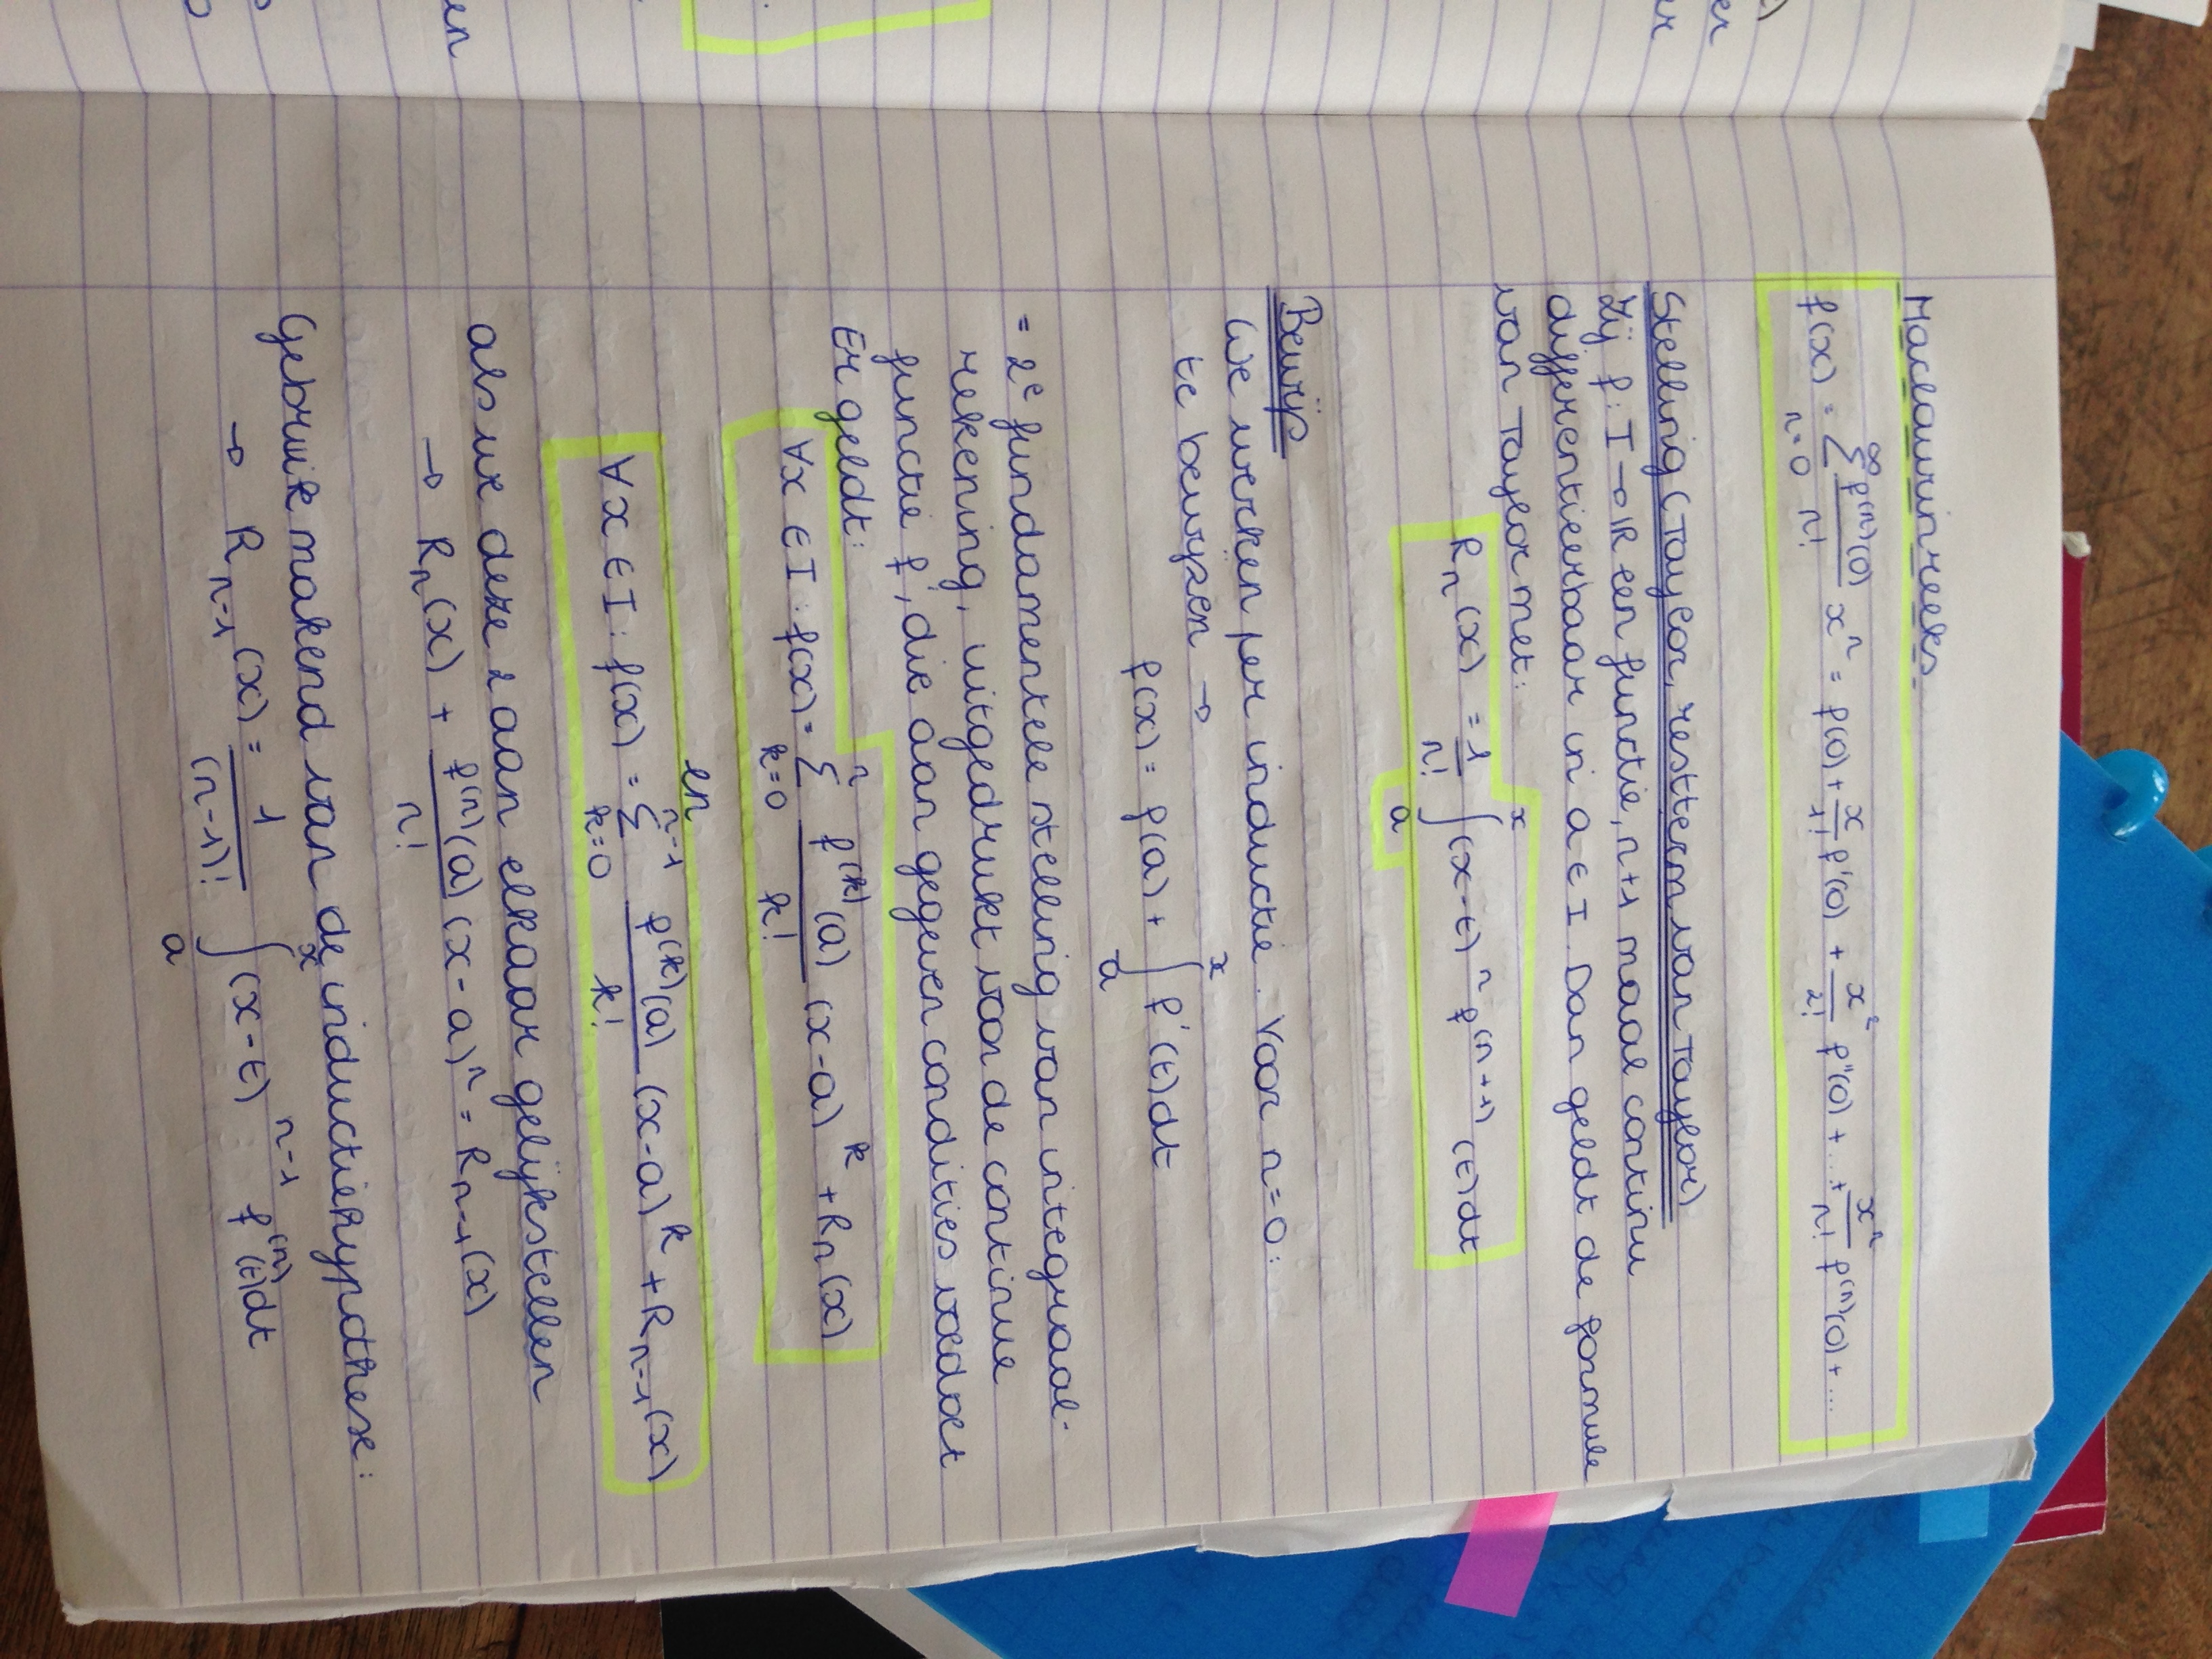 Maclaurinreeks
f(x) = ∑_{n=0}^{∞} f^{(n)}(0)/n! x^n = f(0) + x/1! f'(0) + x²/2! f''(0) + ... + x^n/n! f^{(n)}(0) + ...
Stelling (Taylor, restterm van Taylor)
Zij f: I → ℝ een functie, n+1 maal continu
differentieerbaar in a ∈ I. Dan geldt de formule
van Taylor met:
R_n(x) = 1/n! ∫_a^x (x-t)^n f^{(n+1)}(t)dt
Bewijs
We werken per inductie. Voor n=0:
te bewijzen →
f(x) = f(a) + ∫_a^x f'(t)dt
= 2e fundamentele stelling van integraal-
rekening, uitgedrukt voor de continue
functie f', die aan gegeven condities voldoet
Er geldt:
∀x ∈ I : f(x) = ∑_{k=0}^{n} f^{(k)}(a)/k! (x-a)^k + R_n(x)
en
∀x ∈ I : f(x) = ∑_{k=0}^{n-1} f^{(k)}(a)/k! (x-a)^k + R_{n-1}(x)
als we deze 2 aan elkaar gelijkstellen
→ R_n(x) + f^{(n)}(a)/n! (x-a)^n = R_{n-1}(x)
Gebruik makend van de inductiehypothese:
→ R_{n-1}(x) = 1/(n-1)! ∫_a^x (x-t)^{n-1} f^{(n)}(t)dt